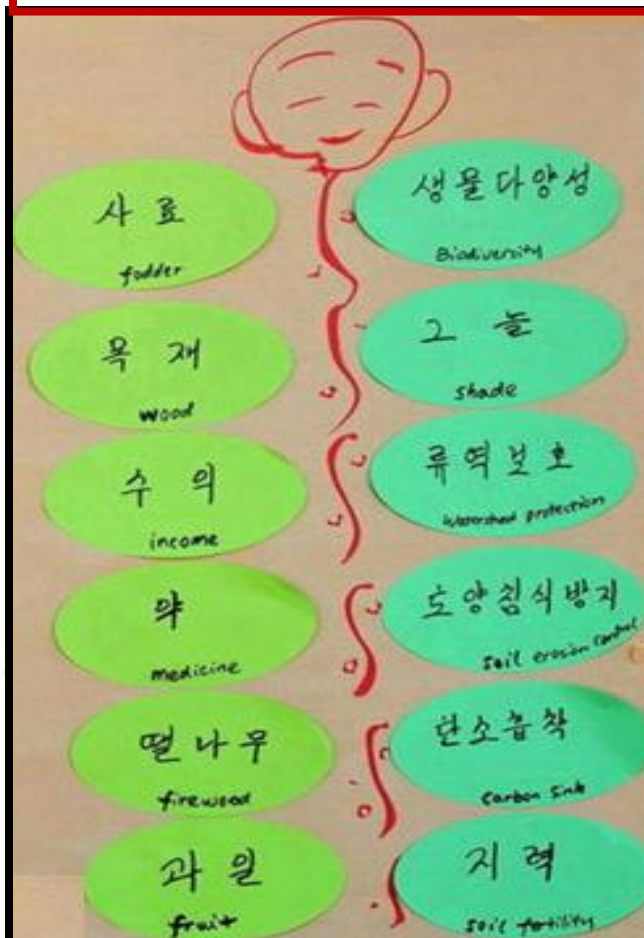 사료
fodder
목재
wood
수익
income
약
medicine
땔나무
firewood
과일
fruit
생물다양성
Biodiversity
그늘
shade
류역보호
Watershed protection
토양침식방지
soil erosion control
탄소흡착
Carbon sink
지력
soil fertility